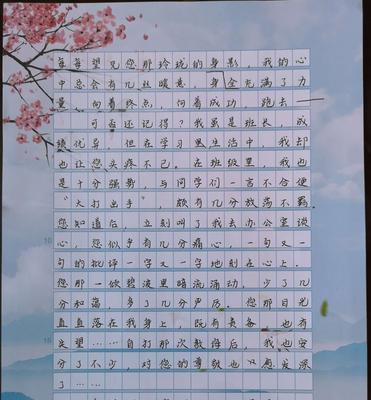 每每望见您那玲珑的身影，我的心
中总会有几丝暖意，身全充满了力
量，向着终点，向着成功，跑去——
可否还记得？我虽是班长，成
绩优异，但在学习里生活中，我却
也让您头疼不已。在班级里，我也
是十分强势，与同学们一言不合便
“大打出手”，颇有几分放荡不羁。
您知道后，立刻叫了我去办公室谈
10
心，您似乎有几分痛心，一句又一
句的批评一字又一字地刻在心上。
您那一软碧波里暗流涌动，少了几
分和蔼，多了几分严厉。您那目光
直直落在我身上，既有责备，也有
15
失望……自打那次教诲后，我也安
分了不少，对您的尊敬也愈发深
了……